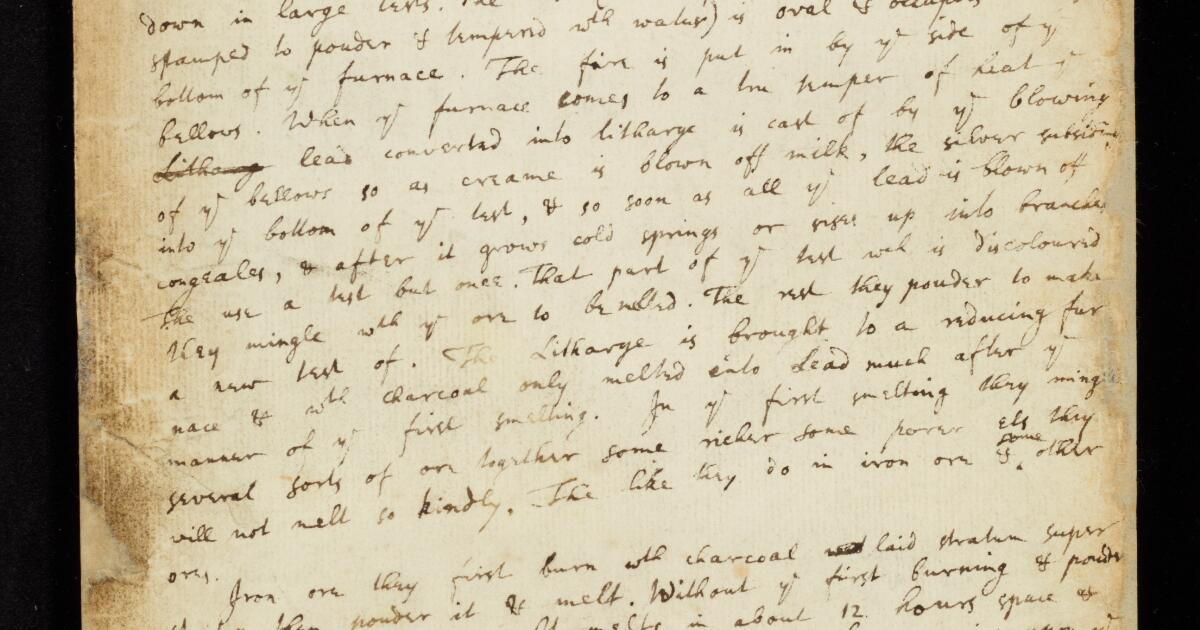 down in large tests. The
stamped to pouder & tempered wth water) is oval & occupies
bottom of ye furnace. The fire is put in by ye side of ye
bellows. When ye furnace comes to a true temper of heat ye
Litharg lead converted into litharge is cast of by ye blowing
of ye bellows so as creame is blown off milk, the silver subsiding
into ye bottom of ye test, & so soon as all ye lead is blown of
congeales, & after it grows cold springs or rises up into branches
The use a test but once. That part of ye test wch is discoloured
they mingle wth ye ore to be melted. The rest they pouder to make
a new test of. The Litharge is brought to a reducing fur
nace & wth charcoal only melted into Lead much after ye
manner of ye first smelting. In ye first smelting they mingle
several sorts of ore together some richer some porer els they
will not melt so kindly. The like they do in iron ore & some other
ores.
Iron ore they first burn wth charcoal laid stratum super
then pouder it & melt. Without ye first burning & pouder
melts in about 12 hours space &